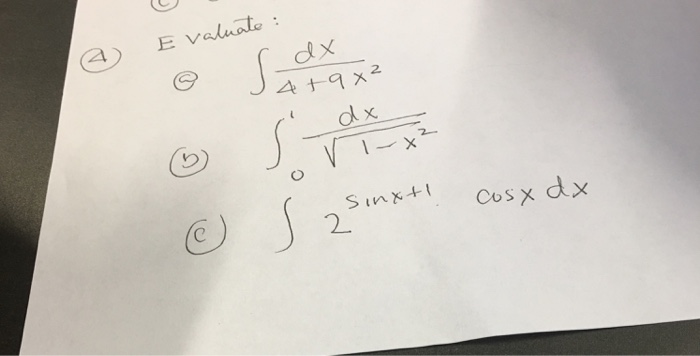 ④ Evaluate :
ⓐ ∫ dx / (4+9x²)
ⓑ ∫₀¹ dx / √(1-x²)
ⓒ ∫ 2^(sinx+1) cosx dx